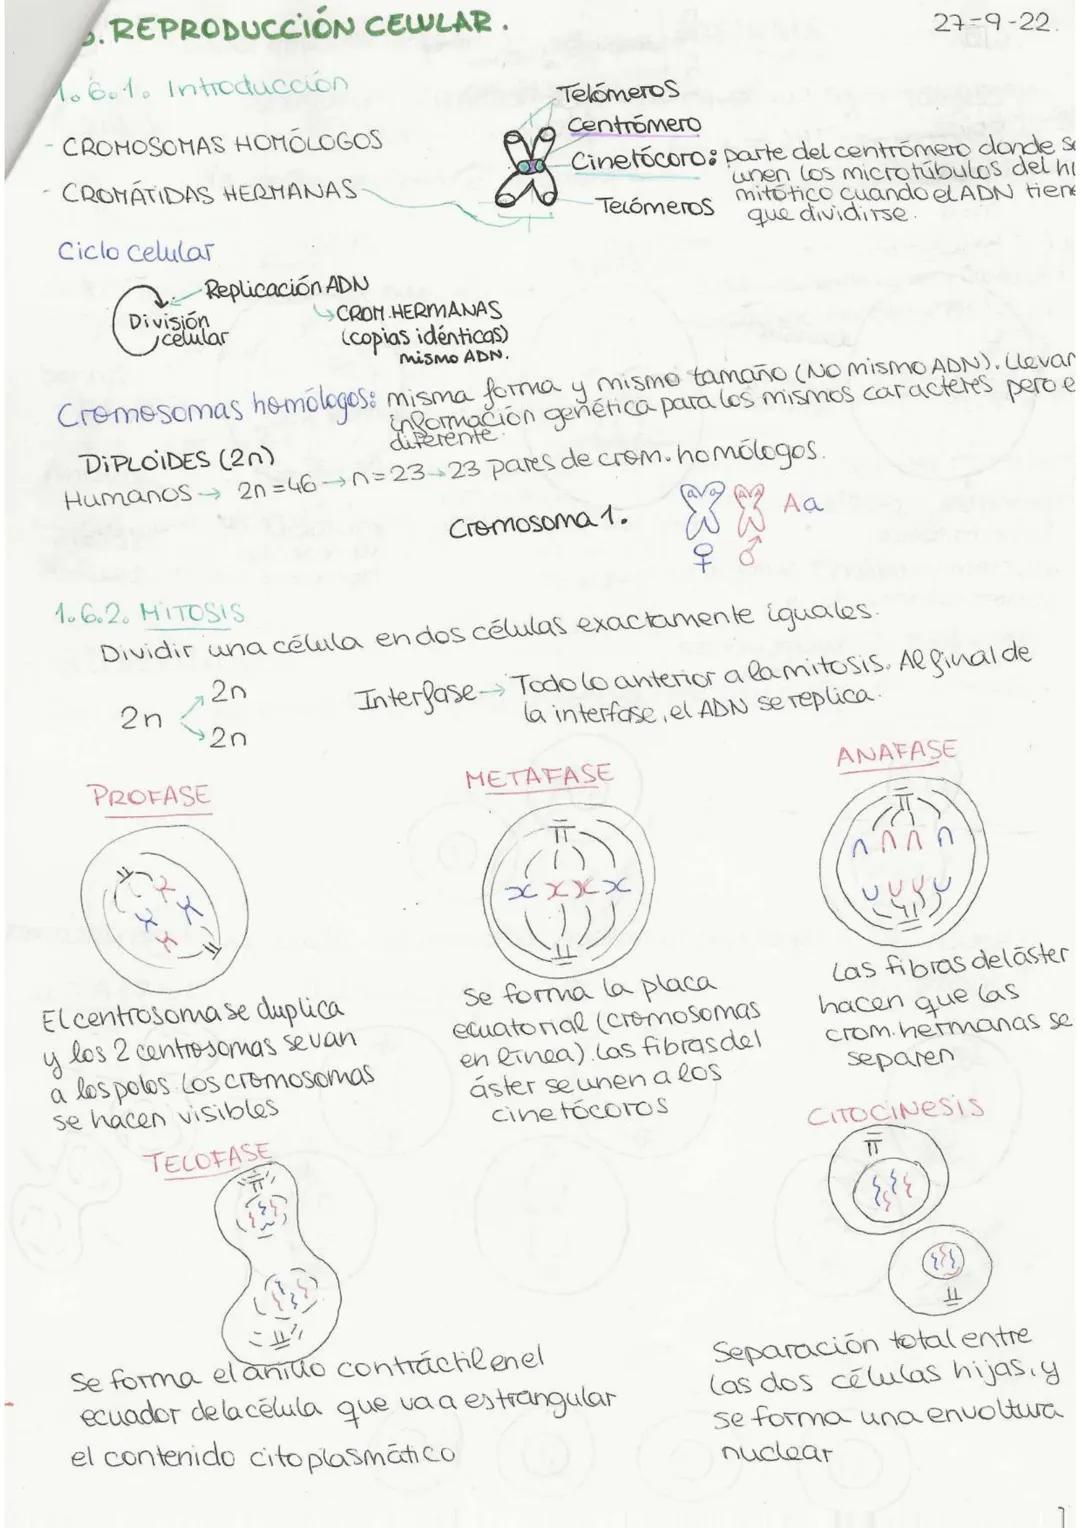 6. REPRODUCCIÓN CELULAR.
27-9-22.
1.6.1. Introducción
- CROMOSOMAS HOMÓLOGOS
- CROMÁTIDAS HERMANAS
Telómeros
Centrómero
Cinetócoro: parte del centrómero donde se
unen los microtúbulos del
mitótico cuando el ADN tiene
que dividirse.
Telómeros
Ciclo celular
Replicación ADN
↳ CROM. HERMANAS
(copias idénticas)
mismo ADN.
División
celular
Cromosomas homólogos: misma forma y mismo tamaño (NO mismo ADN). Llevan
información genética para los mismos caracteres pero
diferente.
DIPLOIDES (2n)
Humanos → 2n=46 → n=23 → 23 pares de crom. homólogos.
Cromosoma 1.
a a A A Aa
♀ ♂
1.6.2. MITOSIS
Dividir una célula en dos células exactamente iguales.
2n
2n
2n
Interfase → Todo lo anterior a la mitosis. Al final de
la interfase, el ADN se replica.
PROFASE
El centrosoma se duplica
y los 2 centrosomas se van
a los polos. Los cromosomas
se hacen visibles
METAFASE
Se forma la placa
ecuatorial (cromosomas
en línea). Las fibras del
áster se unen a los
cinetócoros
ANAFASE
Las fibras del áster
hacen que las
crom. hermanas se
separen
TELOFASE
Se forma el anillo contráctil en el
ecuador de la célula que va a estrangular
el contenido citoplasmático
CITOCINESIS
Separación total entre
las dos células hijas, y
se forma una envoltura
nuclear
1